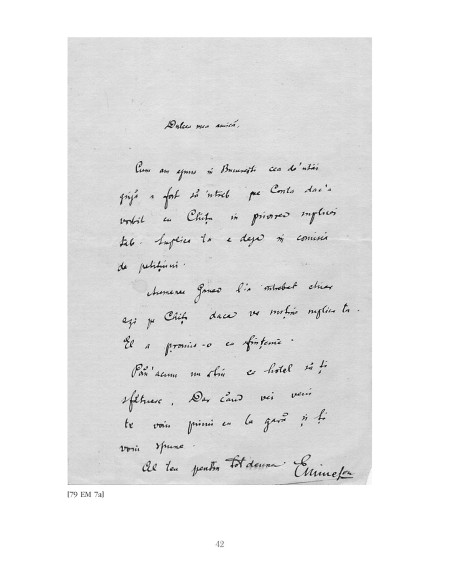 Dulcea mea amică,
Cum am ajuns in Bucureşti cea de'ntăi
grijă a fost să'ntreb pe Conta dac'a
vorbit cu Chiţu in privirea suplicei
tale. Suplica ta e deja in comisia
de petiţiuni.
Asemenea Ganea l'a intrebat chiar
azi pe Chiţu daca va susţine suplica ta.
El a promis-o cu sfinţenie.
Păn'acuma nu ştiu ce hotel să-ţi
sfătuesc. Dar cănd vei veni
te voiu primi eu la gară şi ţi
voiu spune.
Al tău pentru totdeauna Eminescu
[79 EM 7a]
42